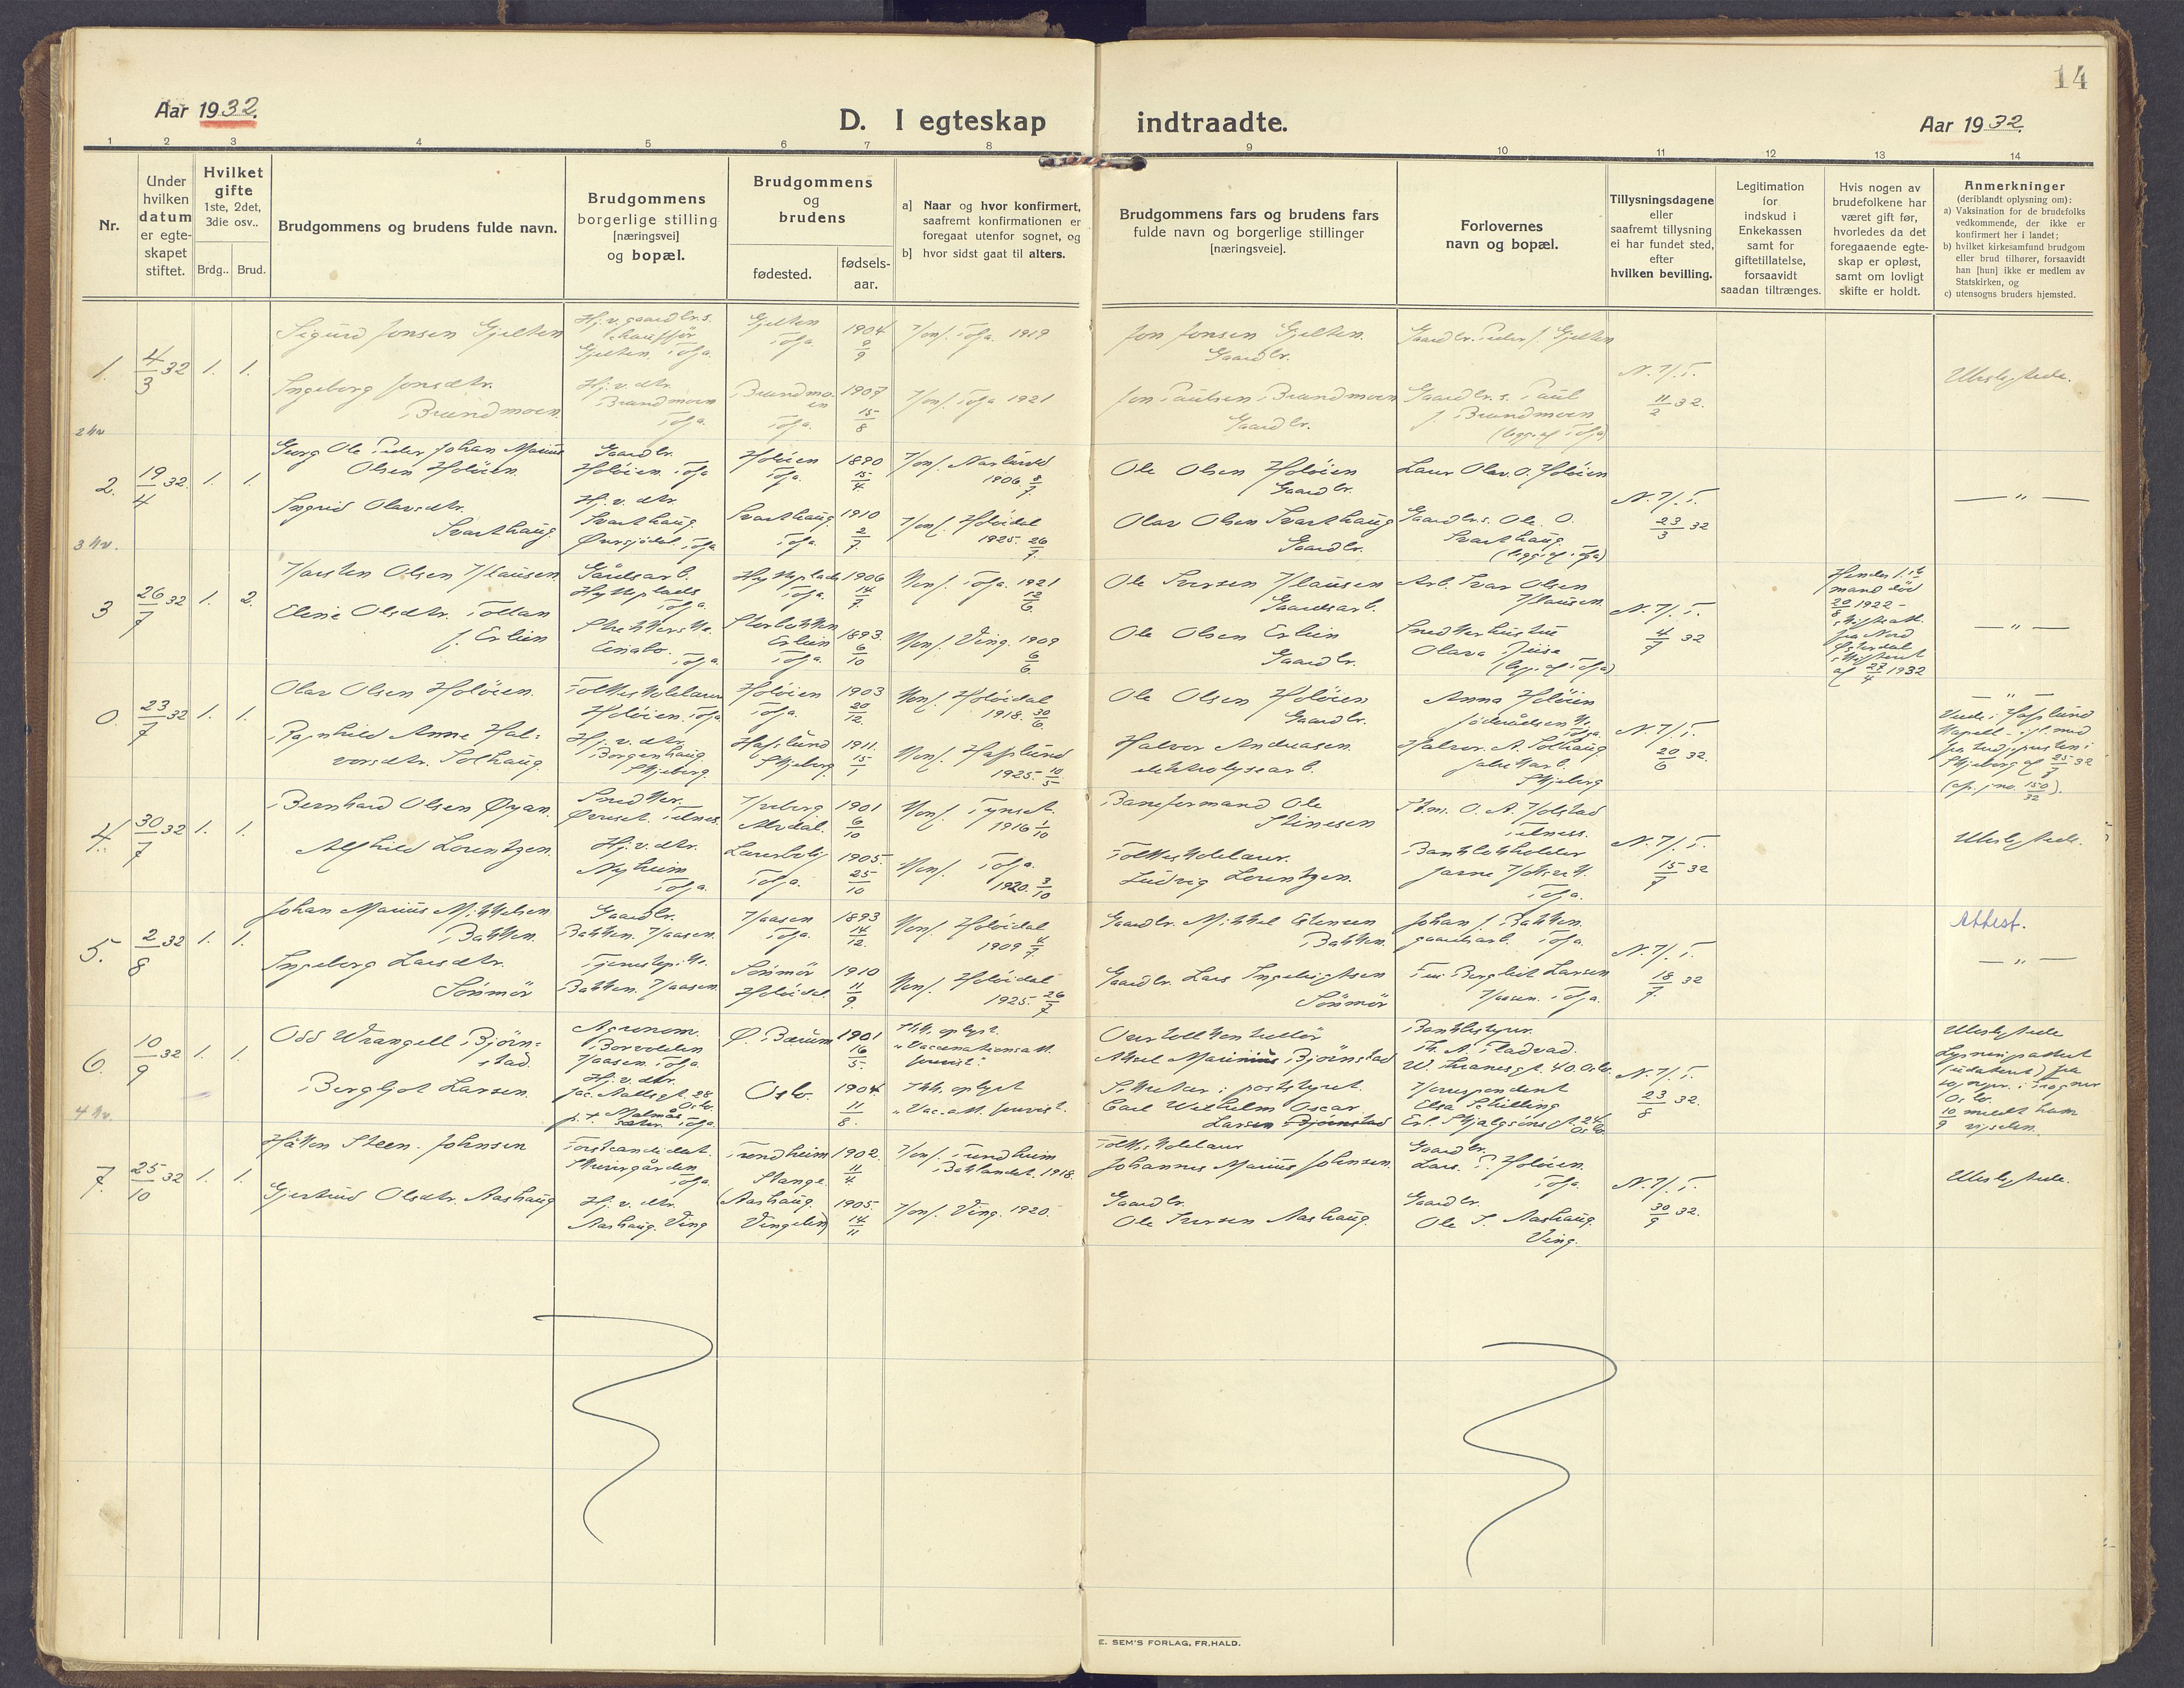 14
Aar 1932.
D. I egteskap indtraadte.
Aar 1932.
1 2 3 4 5 6 7 8 9 10 11 12 13 14
Nr.
Under hvilken datum er egte- skapet stiftet.
Hvilket gifte 1ste, 2det, 3die osv..
Brdg.. Brud.
Brudgommens og brudens fulde navn.
Brudgommens borgerlige stilling [næringsvei] og bopæl.
Brudgommens og brudens
fødested. fødsels- aar.
a] Naar og hvor konfirmert, saafremt konfirmationen er foregaat utenfor sognet, og
b] hvor sidst gaat til alters.
Brudgommens fars og brudens fars fulde navn og borgerlige stillinger [næringsveie].
Forlovernes navn og bopæl.
Tillysningsdagene eller saafremt tillysning ei har fundet sted, efter hvilken bevilling.
Legitimation for indskud i Enkekassen samt for giftetillatelse, forsaavidt saadan tiltrænges.
Hvis nogen av brudefolkene har været gift før, hvorledes da det foregaaende egte- skap er opløst, samt om lovligt skifte er holdt.
Anmerkninger (deriblandt oplysning om):
a) Vaksination for de brudefolks vedkommende, der ikke er konfirmert her i landet;
b) hvilket kirkesamfund brudgom eller brud tilhører, forsaavidt han [hun] ikke er medlem av Statskirken, og
c) utensogns bruders hjemsted.
1. 4/3 32 1. 1.
Sigurd Jonsen Gjelten
Hj. v. gaardbr. s. chauffør Gjelten. Tolga.
Gjelten Tolga. 1904 9/9
Konf. Tolga. 1919
Jon Jonsen Gjelten. Gaardbr.
Gaardbr. Peder J. Gjelten
Ingeborg Jonsdtr. Brandmoen
Hj. v. dtr. Brandmoen Tolga.
Brandmo- en Tolga. 1907 15/8
Konf. Tolga 1921
Jon Paulsen Brandmoen Gaardbr.
Gaardbr. s. Paul J. Brandmoen (begge af Tolga)
N. K. T. 11/2 32.
2 kv
2. 19/4 32. 1. 1.
Georg Ole Peder Johan Marius Olsen Holøien.
Gaardbr. Holøien. Tolga
Holøien Tolga. 1890 15/4
Konf. 1906. 8/7
Ole Olsen Holøien Gaardbr.
Olav O. Holøien
Ingrid Olavsdtr. Svarthaug.
Hj. v. dtr. Svarthaug. Øversjødal. Tolga
Svarthaug. Tolga. 1910 2/7
Konf. Holøidal 1925. 26/7.
Olav Olsen Svarthaug Gaardbr.
Gaardbr. s. Ole O. Svarthaug. (begge af Tolga)
N. K. T. 23/3 32
— " —
3 kv.
3 26/7 32 1. 2.
Karsten Olsen Klausen
Gårdsarb. Hytteplads Tolga.
Hytteplads Tolga. 1906 14/7.
Konf. Tolga. 1921 12/6.
Ole Iversen Klausen Gaardsarb.
Arb. Ivar Olsen Klausen.
Eline Olsdtr. Tollan f. Erlien
Erlien Tolga. 1893. 6/10
Konf. Ving. 1909 6/6.
Ole Olsen Erlien Gaardbr.
Olava (begge af Tolga)
N. K. T. 4/7 32
Hendes 1ste mand død 20/8 1922 - skifteatt. fra Nord Østerdal skifterett af 27/4 1932
— " —
0. 23/7 32 1. 1.
Olav Olsen Holøien.
Folkeskolelærer Holøien. Tolga
Holøien Tolga. 1903 20/12.
Konf. Holøidal 1918. 30/6.
Ole Olsen Holøien Gaardbr.
Anna Holøien Tolga.
Ragnhild Anne Hal= vorsdtr. Solhaug.
Hj. v. dtr. Borgenhaug. Skjeberg.
Hafslund Skjeberg. 1911. 15/1
Konf. Hafslund 1925. 10/5
Halvor Andreasen. elektrolysearb.
Halvor. A. Solhaug. fabrikarb. Skjeberg
N. K. T. 20/6 32.
— " —
Viede i Hafslund kapell - ifl. med. fra sogepresten i Skjeberg af 25/7 32 (cfr. jno. 150/32).
4. 30/7 32 1. 1.
Bernhard Olsen Øyan.
Snedker. Øvreset. Telnes.
Alvdal. 1901 6/10
Konf. Tynset. 1916 1/10
Baneformand Ole Stinesen
O. A. Kolstad Telness.
Alfhild Lorentzen.
Hj. v. dtr. Nyheim Tolga.
Tolga. 1905. 25/10
Konf. Tolga. 1920. 3/10
Folkeskolelærer. Ludvig Lorentzen.
Tolga.
N. K. T. 15/7 32
Uleslystede.
5. 2/8 32 1. 1.
Johan Marius Mikkelsen Bakken.
Gaardbr. Bakken. Kaasen.
Kaasen Tolga. 1893 14/12.
Konf. Holøidal 1909 4/7
Gaardbr. Mikkel Estensen Bakken.
Johan J. Bakken. gaardsarb. Tolga.
Ingeborg Larsdtr. Sömmör
Tjenestepike. Bakken. Kaasen.
Sömmör Holöidal. 1910 11/9.
Konf. Holøidal 1925. 26/7
Gaardbr. Lars Ingebrigtsen Sömmör
Fru Bergliot Larsen Kaasen. Tolga.
N. K. T. 18/7. 32
Attest.
— " —
6. 10/9 32 1. 1.
Odd Wrangell Björn= stad.
Agronom. Borvolden Kaasen. Tolga
Ø. Bærum 1901 16/5.
Ikke oplyst. "Vaccinationsatt. forevist".
Overtollkontrollør Aksel Marinius Björnstad
Bankbestyrer. Th. A. Fladvad. W. Thranesgt. 40. Oslo.
Bergljot Larsen.
Hj. v. dtr. Jac. Aallsgt. 28 Oslo. p. t. Malmås sæter. Tolga
Oslo. 1904. 11/8.
Ikke oplyst "Vac. att. forevist.
Sekretær i poststyret. Carl Wilhelm Oscar Larsen
Korrespondent Elsa Schilling Erl. Skjalgsönsgt. 24 Oslo.
N. K. T. 23/8 32.
Lysningsattest (udatert) fra Oslo. 10/9 meldt ham vigselen.
4 kv.
7. 25/10 32 1. 1.
Håkon Steen. Johnsen
Forstcandidat. Tolga.
Trondheim Stange. 1902. 11/4.
Konf. Trondheim Baklandet. 1918.
Folkeskolelærer Johannes Marius Johnsen.
Gaardbr. Lars. P. Holøien. Tolga
Gjertrud Olsdtr. Aashaug
Hj. v. dtr. Aashaug. Ving
Aashaug. Vingelen 1905. 14/11
Konf. Ving. 1920.
Gaardbr. Ole Iversen Aashaug.
Gaardbr. Ole I. Aashaug. Ving.
N. K. T. 30/9 32.
E. SEM'S FORLAG, FR.HALD.